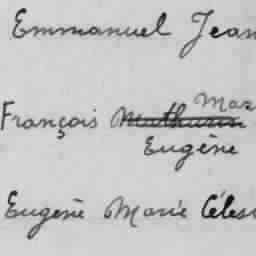 Emmanuel Jean
François Mathurin Mar
Eugène
Eugène Marie Céles